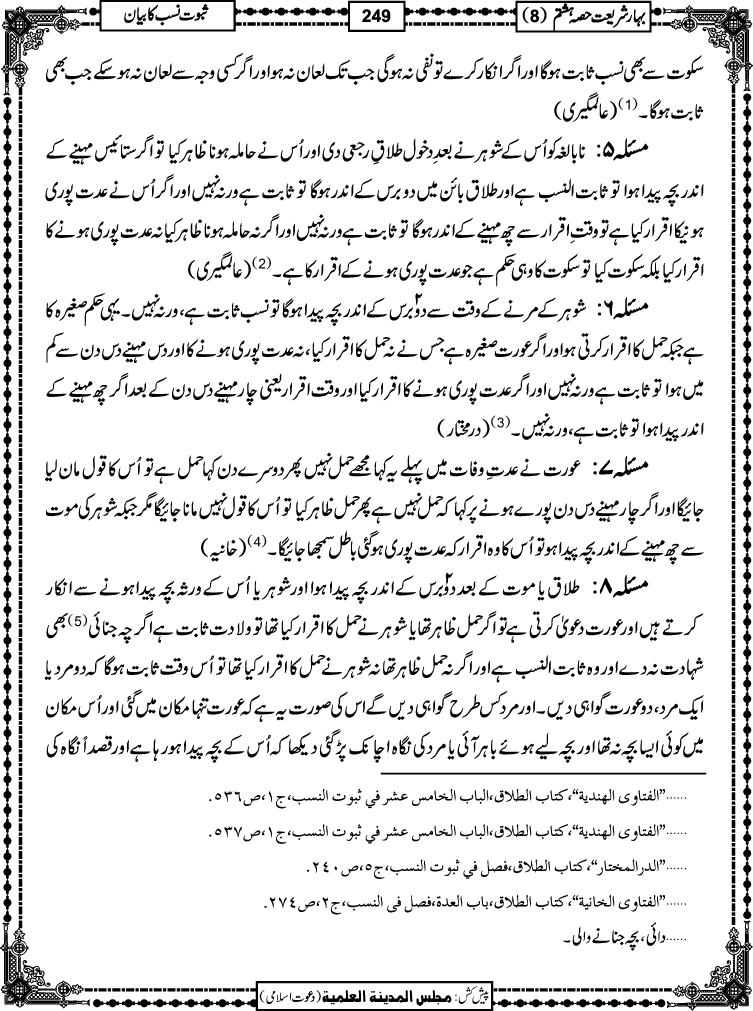 بہار شریعت حصہ ہشتم (8)
249
ثبوت نسب کا بیان
سکوت سے بھی نسب ثابت ہوگا اور اگر انکار کرے تو نفی نہ ہوگی جب تک لعان نہ ہو اور اگر کسی وجہ سے لعان نہ ہو سکے جب بھی
ثابت ہوگا۔(1) (عالمگیری)
مسئلہ ۵: نابالغہ کو اُس کے شوہر نے بعدِ دخول طلاقِ رجعی دی اور اُس نے حاملہ ہونا ظاہر کیا تو اگر ستائیس مہینے کے
اندر بچہ پیدا ہوا تو ثابت النسب ہے اور طلاق بائن میں دو برس کے اندر ہوگا تو ثابت ہے ورنہ نہیں اور اگر اُس نے عدت پوری
ہونیکا اقرار کیا ہے تو وقتِ اقرار سے چھ مہینے کے اندر ہوگا تو ثابت ہے ورنہ نہیں اور اگر نہ حاملہ ہونا ظاہر کیا نہ عدت پوری ہونے کا
اقرار کیا بلکہ سکوت کیا تو سکوت کا وہی حکم ہے جو عدت پوری ہونے کے اقرار کا ہے۔(2) (عالمگیری)
مسئلہ ۶: شوہر کے مرنے کے وقت سے دو۲ برس کے اندر بچہ پیدا ہوگا تو نسب ثابت ہے، ورنہ نہیں۔ یہی حکم صغیرہ کا
ہے جبکہ حمل کا اقرار کرتی ہو اور اگر عورت صغیرہ ہے جس نے نہ حمل کا اقرار کیا، نہ عدت پوری ہونے کا اور دس مہینے دس دن سے کم
میں ہوا تو ثابت ہے ورنہ نہیں اور اگر عدت پوری ہونے کا اقرار کیا اور وقت اقرار یعنی چار مہینے دس دن کے بعد اگر چھ مہینے کے
اندر پیدا ہوا تو ثابت ہے، ورنہ نہیں۔(3) (درمختار)
مسئلہ ۷: عورت نے عدتِ وفات میں پہلے یہ کہا مجھے حمل نہیں پھر دوسرے دن کہا حمل ہے تو اُس کا قول مان لیا
جائیگا اور اگر چار مہینے دس دن پورے ہونے پر کہا کہ حمل نہیں ہے پھر حمل ظاہر کیا تو اُس کا قول نہیں مانا جائیگا مگر جبکہ شوہر کی موت
سے چھ مہینے کے اندر بچہ پیدا ہو تو اُس کا وہ اقرار کہ عدت پوری ہوگئی باطل سمجھا جائیگا۔(4) (خانیہ)
مسئلہ ۸: طلاق یا موت کے بعد دو۲ برس کے اندر بچہ پیدا ہوا اور شوہر یا اُس کے ورثہ بچہ پیدا ہونے سے انکار
کرتے ہیں اور عورت دعویٰ کرتی ہے تو اگر حمل ظاہر تھا یا شوہر نے حمل کا اقرار کیا تھا تو ولادت ثابت ہے اگر چہ جنائی(5) بھی
شہادت نہ دے اور وہ ثابت النسب ہے اور اگر نہ حمل ظاہر تھا نہ شوہر نے حمل کا اقرار کیا تھا تو اُس وقت ثابت ہوگا کہ دو مرد یا
ایک مرد، دو عورت گواہی دیں۔ اور مرد کس طرح گواہی دیں گے اس کی صورت یہ ہے کہ عورت تنہا مکان میں گئی اور اُس مکان
میں کوئی ایسا بچہ نہ تھا اور بچہ لیے ہوئے باہر آئی یا مرد کی نگاہ اچانک پڑ گئی دیکھا کہ اُس کے بچہ پیدا ہو رہا ہے اور قصداً نگاہ کی
......"الفتاوی الهندية"، کتاب الطلاق،الباب الخامس عشر في ثبوت النسب،ج١،ص٥٣٦.
......"الفتاوی الهندية"، کتاب الطلاق،الباب الخامس عشر في ثبوت النسب،ج١،ص٥٣٧.
......"الدرالمختار"، کتاب الطلاق،فصل في ثبوت النسب،ج٥،ص٢٤٠.
......"الفتاوی الخانية"، کتاب الطلاق،باب العدة،فصل فی النسب،ج٢،ص٢٧٤.
......دائی، بچہ جنانے والی۔
پیش کش: مجلس المدینة العلمية (دعوت اسلامی)